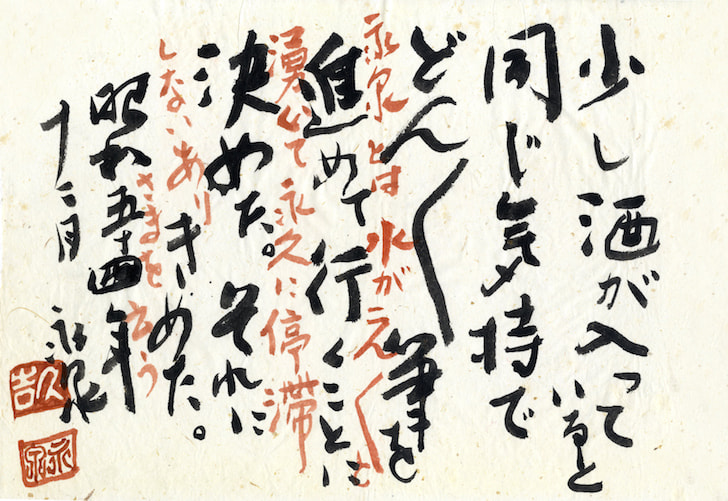 少し酒が入って
いると
同じ気持で
どん〱筆を
進めて行くことに
決めた。それに
きーめた。
昭和五十四年
十二月 永泉
永泉とは水がえ〱と
湧いて永久に停滞
しないあり
さまを云う
久吉
永泉